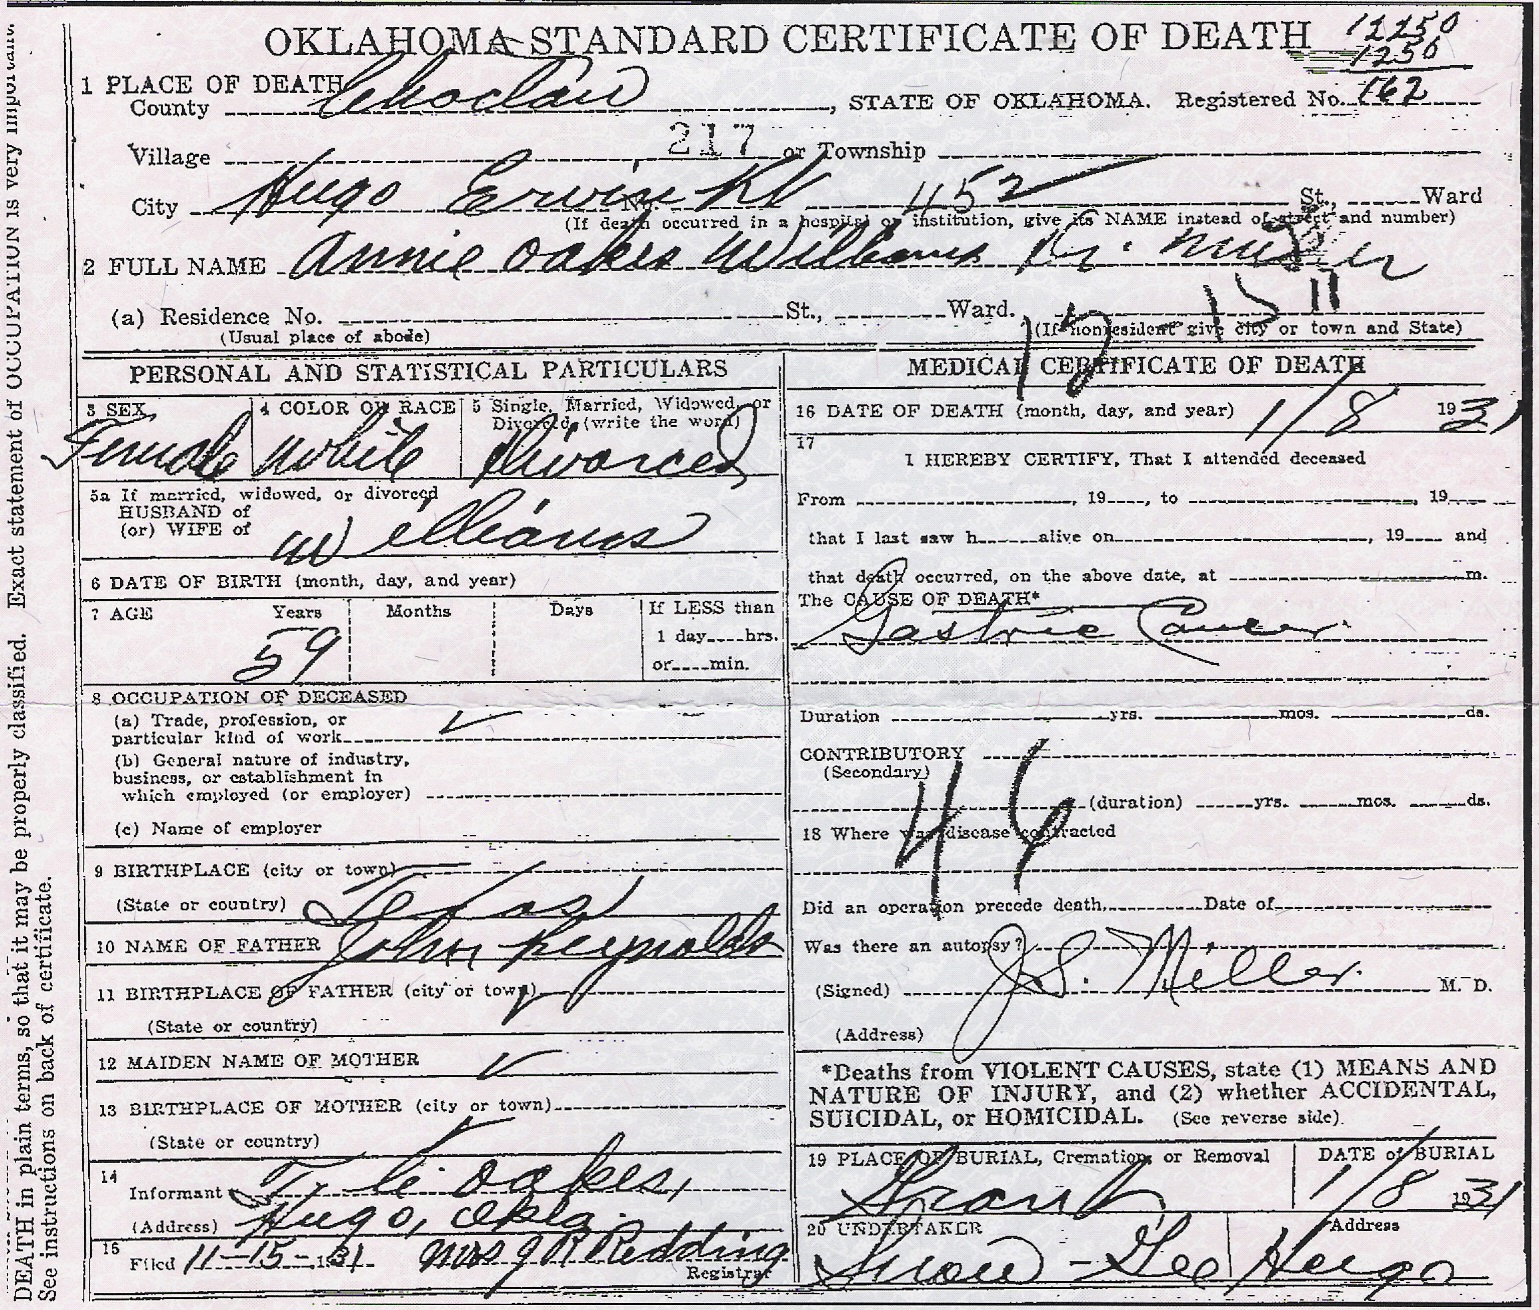 OKLAHOMA STANDARD CERTIFICATE OF DEATH 12250
1250
1 PLACE OF DEATH
County Choctaw, STATE OF OKLAHOMA. Registered No. 162
Village 217 or Township
City Hugo Erwin No. 452 St., Ward
(If death occurred in a hospital or institution, give its NAME instead of street and number)
2 FULL NAME Annie Oakes Williams
(a) Residence No. St., Ward.
(Usual place of abode) (If nonresident give city or town and State)
12 13 11
PERSONAL AND STATISTICAL PARTICULARS
3 SEX 4 COLOR OR RACE 5 Single, Married, Widowed, or
Divorced (write the word)
Female White Divorced
5a If married, widowed, or divorced
HUSBAND of
(or) WIFE of Williams
6 DATE OF BIRTH (month, day, and year)
7 AGE Years Months Days If LESS than
1 day hrs.
59 or min.
8 OCCUPATION OF DECEASED
(a) Trade, profession, or
particular kind of work ✓
(b) General nature of industry,
business, or establishment in
which employed (or employer)
(c) Name of employer
9 BIRTHPLACE (city or town)
(State or country) Texas
10 NAME OF FATHER John Reynolds
11 BIRTHPLACE OF FATHER (city or town)
(State or country)
12 MAIDEN NAME OF MOTHER ✓
13 BIRTHPLACE OF MOTHER (city or town)
(State or country) ✓
14
Informant Oakes,
(Address) Hugo, Okla.
15 Filed 11-15-1931 Mrs J R Redding
Registrar
MEDICAL CERTIFICATE OF DEATH
16 DATE OF DEATH (month, day, and year) 1/8 1931
17
I HEREBY CERTIFY, That I attended deceased
From , 19 , to , 19
that I last saw h alive on , 19 and
that death occurred, on the above date, at m.
The CAUSE OF DEATH*
Gastric Cancer
Duration yrs. mos. ds.
CONTRIBUTORY
(Secondary)
46
(duration) yrs. mos. ds.
18 Where was disease contracted
Did an operation precede death, Date of
Was there an autopsy?
(Signed) J.S. Miller M. D.
(Address)
*Deaths from VIOLENT CAUSES, state (1) MEANS AND
NATURE OF INJURY, and (2) whether ACCIDENTAL,
SUICIDAL, or HOMICIDAL. (See reverse side).
19 PLACE OF BURIAL, Cremation, or Removal DATE of BURIAL
Grant 1/8 1931
20 UNDERTAKER Address
Snow - Gee Hugo
DEATH in plain terms, so that it may be properly classified. Exact statement of OCCUPATION is very important.
See instructions on back of certificate.